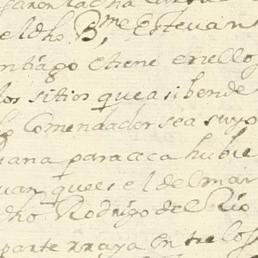 el dho. B.me Estevan
ntiago e tiene en ellos
los sitios que asi bende
Comendador sea suyo
para aca hubie
uan que es el del mar
dho. Rodrigo del Rio
parte rraya entre los